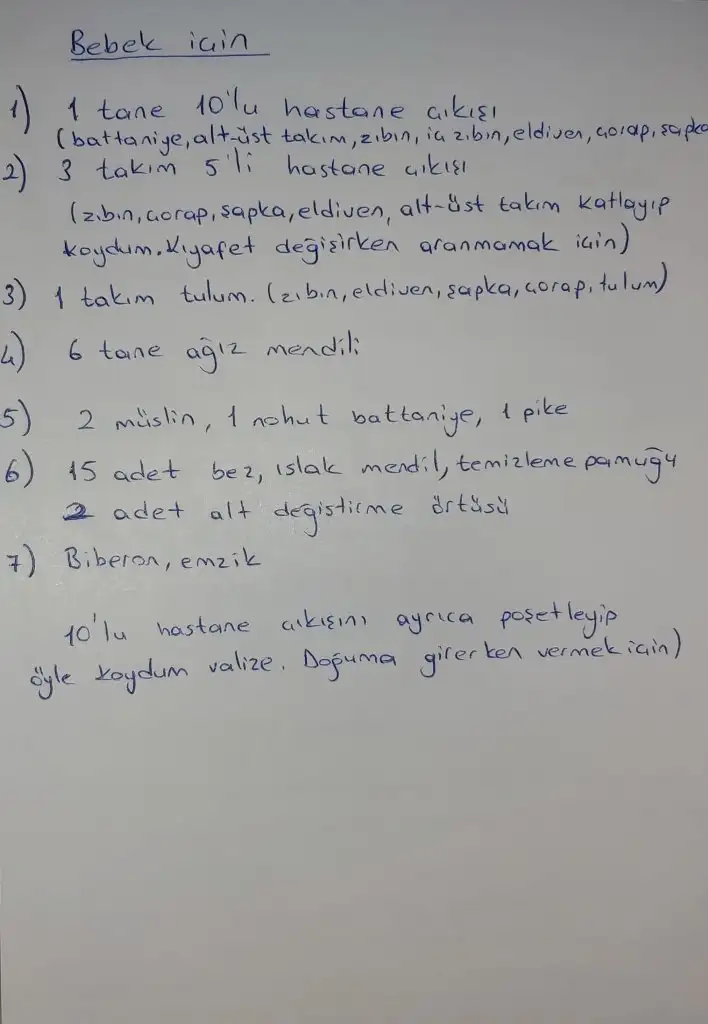 Bebek için
1) 1 tane 10'lu hastane çıkışı
(battaniye, alt-üst takım, zıbın, iç zıbın, eldiven, çorap, şapka
2) 3 takım 5'li hastane çıkışı
(zıbın, çorap, şapka, eldiven, alt-üst takım katlayıp
koydum. Kıyafet değişirken aranmamak için)
3) 1 takım tulum. (zıbın, eldiven, şapka, çorap, tulum)
4) 6 tane ağız mendili
5) 2 müslin, 1 nohut battaniye, 1 pike
6) 15 adet bez, ıslak mendil, temizleme pamuğu
2 adet alt değistirme örtüsü
7) Biberon, emzik
10'lu hastane çıkışını ayrıca poşetleyip
öyle koydum valize. Doğuma girerken vermek için)